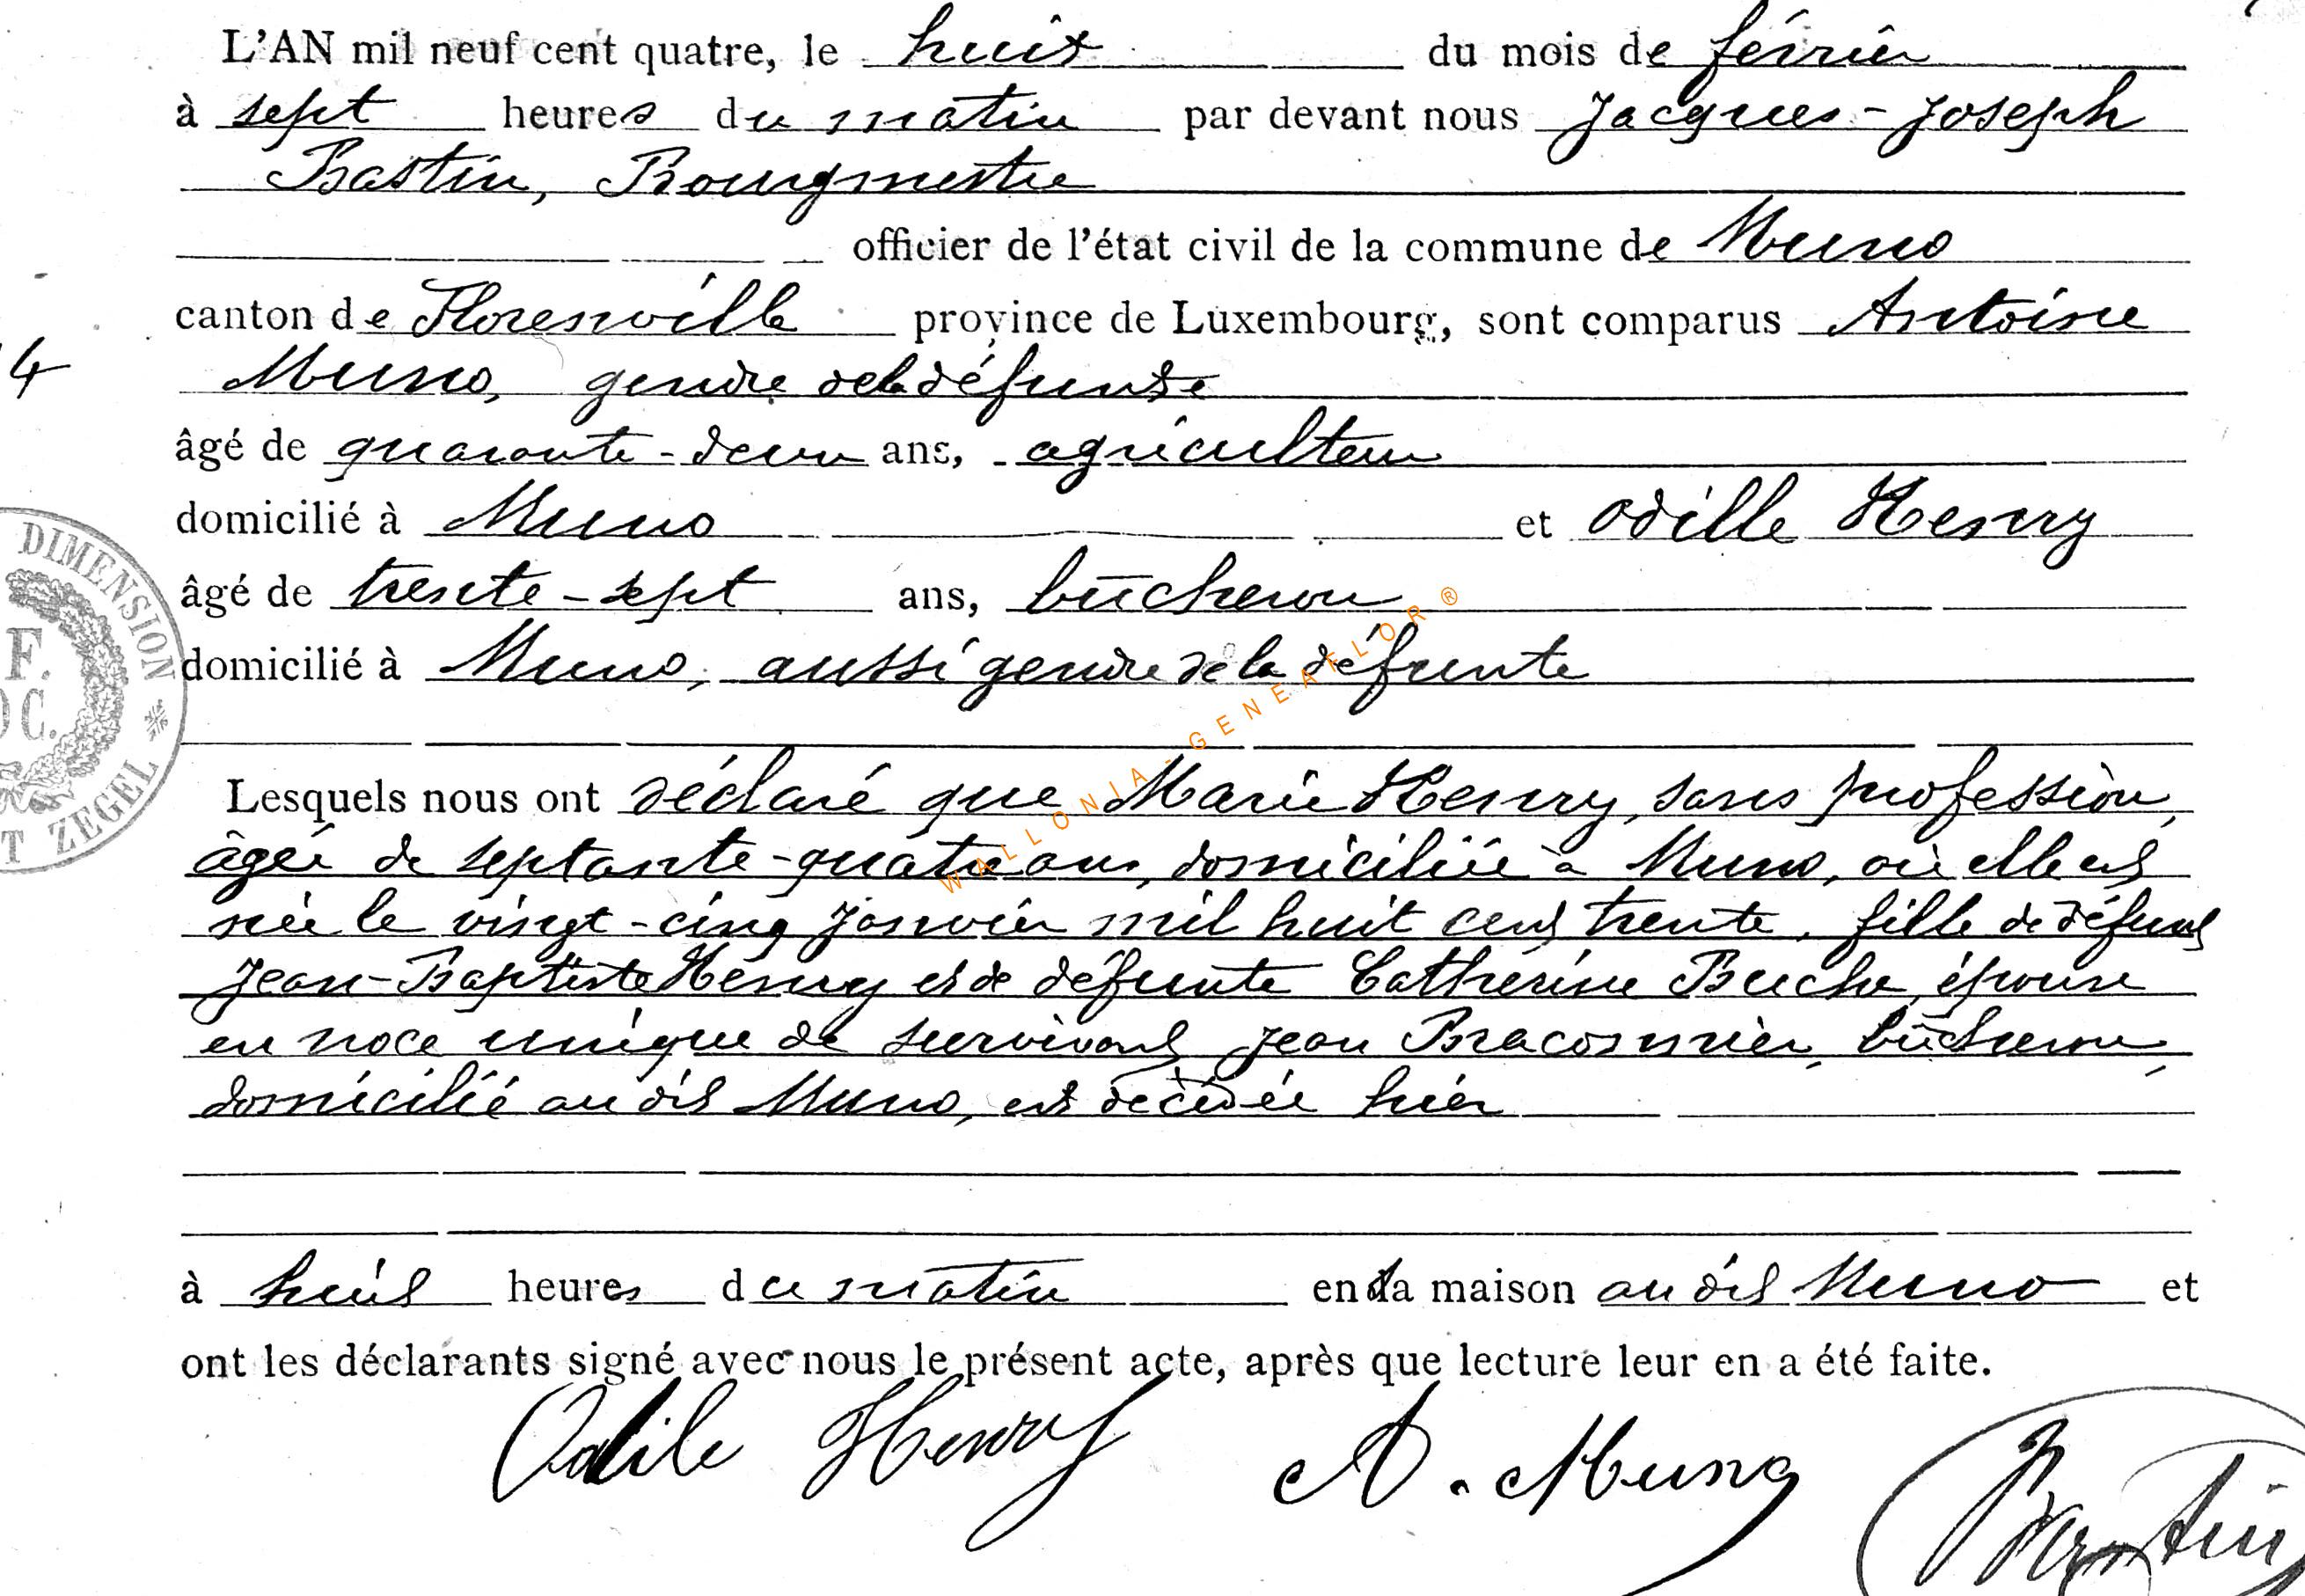 L'AN mil neuf cent quatre, le huit du mois de février
à sept heures du matin par devant nous Jacques-Joseph
Bastin, Bourgmestre
officier de l'état civil de la commune de Muno
canton de Florenville province de Luxembourg, sont comparus Antoine
4
Muno, gendre de la défunte
âgé de quarante-deux ans, agriculteur
domicilié à Muno et Odille Henry
âgé de trente-sept ans, bûcheron
domicilié à Muno, aussi gendre de la défunte
DIMENSION
F.
C.
T ZEGEL
WALLONIA-GENEAFLOR®
Lesquels nous ont déclaré que Marie Henry, sans profession,
âgée de septante-quatre ans, domiciliée à Muno, où elle est
née le vingt-cinq janvier mil huit cent trente, fille de défunt
Jean-Baptiste Henry et de défunte Catherine Buche, épouse
en noce unique de survivant Jean Braconnier, bûcheron,
domicilié au dit Muno, est décédée hier
à huit heures du matin en sa maison au dit Muno et
ont les déclarants signé avec nous le présent acte, après que lecture leur en a été faite.
Odile Henry A. Muno Bastin